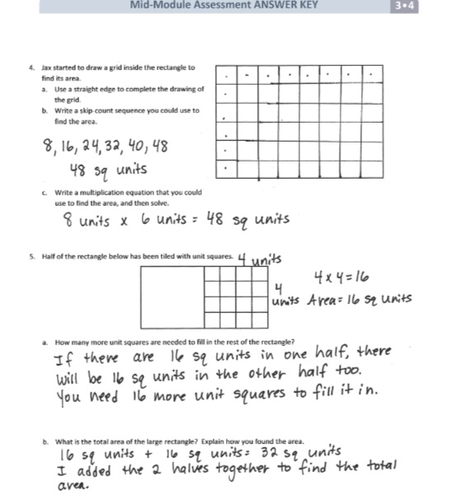 Mid-Module Assessment ANSWER KEY
3•4
4. Jax started to draw a grid inside the rectangle to
find its area.
a. Use a straight edge to complete the drawing of
the grid.
b. Write a skip-count sequence you could use to
find the area.
8, 16, 24, 32, 40, 48
48 sq units
c. Write a multiplication equation that you could
use to find the area, and then solve.
8 units x 6 units = 48 sq units
5. Half of the rectangle below has been tiled with unit squares.
4 units
4
units
4 x 4 = 16
Area = 16 sq units
a. How many more unit squares are needed to fill in the rest of the rectangle?
If there are 16 sq units in one half, there
will be 16 sq units in the other half too.
You need 16 more unit squares to fill it in.
b. What is the total area of the large rectangle? Explain how you found the area.
16 sq units + 16 sq units = 32 sq units
I added the 2 halves together to find the total
area.